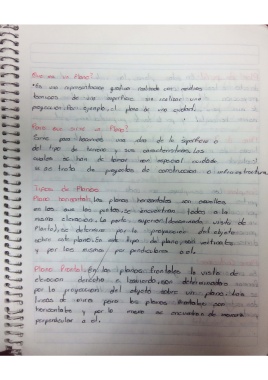 Que es un Plano?
*Es una representación grafica realizada por medios
tecnicos de una superficie sin realizar una
proyeccion Por ejemplo el plano de una ciudad.
Para que sirve un Plano?
Sirve para hacernos una idea de la superficie o
del tipo de terreno y sus caracteristicas, los
cuales se han de tomar con especial cuidado
si se trata de proyectos de construccion e infraestructura
Tipos de Planos
Plano horizontal: Los planos horizontales son aquellos
en los que los puntos se encuentran todos a la
misma elevacion. La parte superior (observando vista de
Planta), se determina por la proyeccion del objeto
sobre este plano. En este tipo del plano son verticales
y por los mismo perpendiculares a el.
Plano Frontal: En los planos frontales la vista de
elevacion derecha o izquierda, son determinadas
por la proyeccion del objeto sobre un plano. La
lineas de mira para los planos frontales son
horizontales y por lo mismo se encuentran de manera
perpendicular a el.